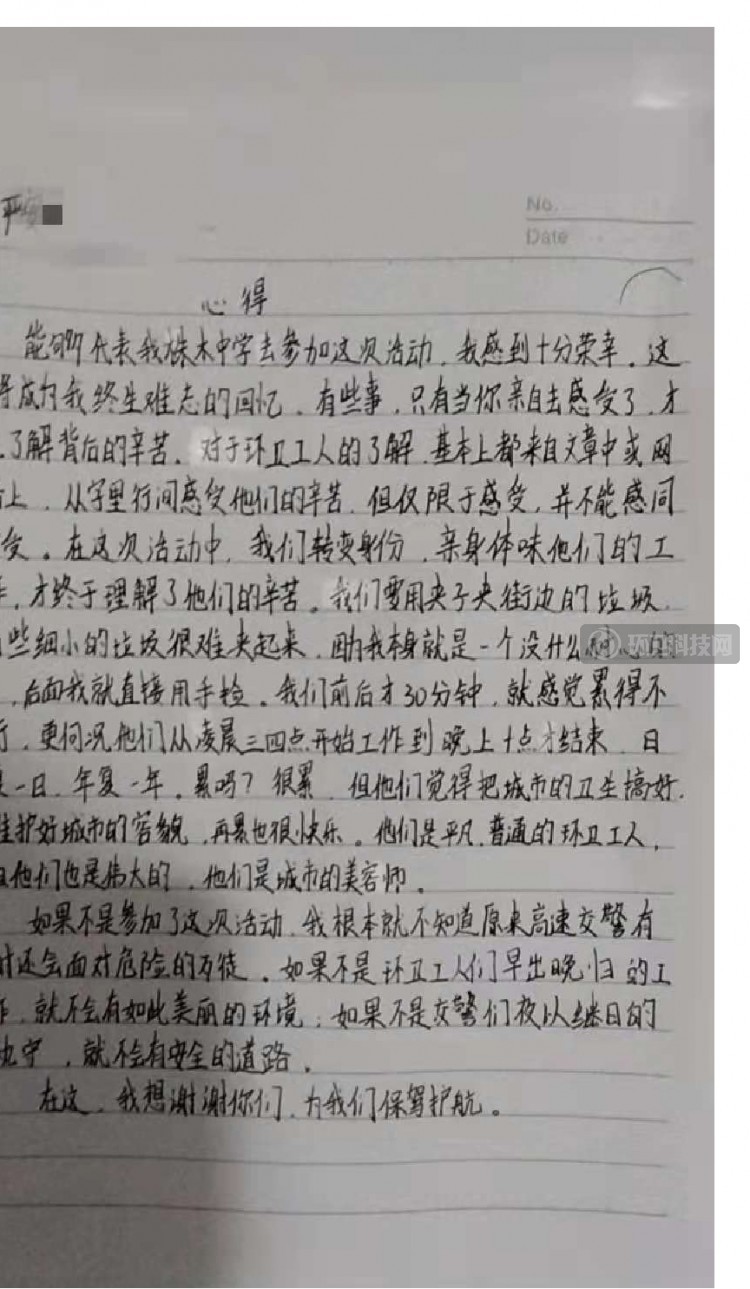 平
No.
Date
心得
能够代表我株木中学去参加这次活动,我感到十分荣幸。这
将成为我终生难忘的回忆。有些事,只有当你亲自去感受了,才
了解背后的辛苦。对于环卫工人的了解,基本上都来自文章中或网
上,从字里行间感受他们的辛苦,但仅限于感受,并不能感同
受。在这次活动中,我们转变身份,亲身体味他们的工
,才终于理解了他们的辛苦。我们要用夹子夹街边的垃圾,
些细小的垃圾很难夹起来,因为我本身就是一个没什么耐心的
,后面我就直接用手捡。我们前后才30分钟,就感觉累得不
行,更何况他们从凌晨三四点开始工作到晚上十点才结束,日
复一日,年复一年。累吗?很累,但他们觉得把城市的卫生搞好,
维护好城市的容貌,再累也很快乐。他们是平凡、普通的环卫工人,
但他们也是伟大的,他们是城市的美容师。
如果不是参加了这次活动,我根本就不知道原来高速交警有
时还会面对危险的歹徒。如果不是环卫工人们早出晚归的工
作,就不会有如此美丽的环境;如果不是交警们夜以继日的
执守,就不会有安全的道路。
在这,我想谢谢你们,为我们保驾护航。
环卫科技网